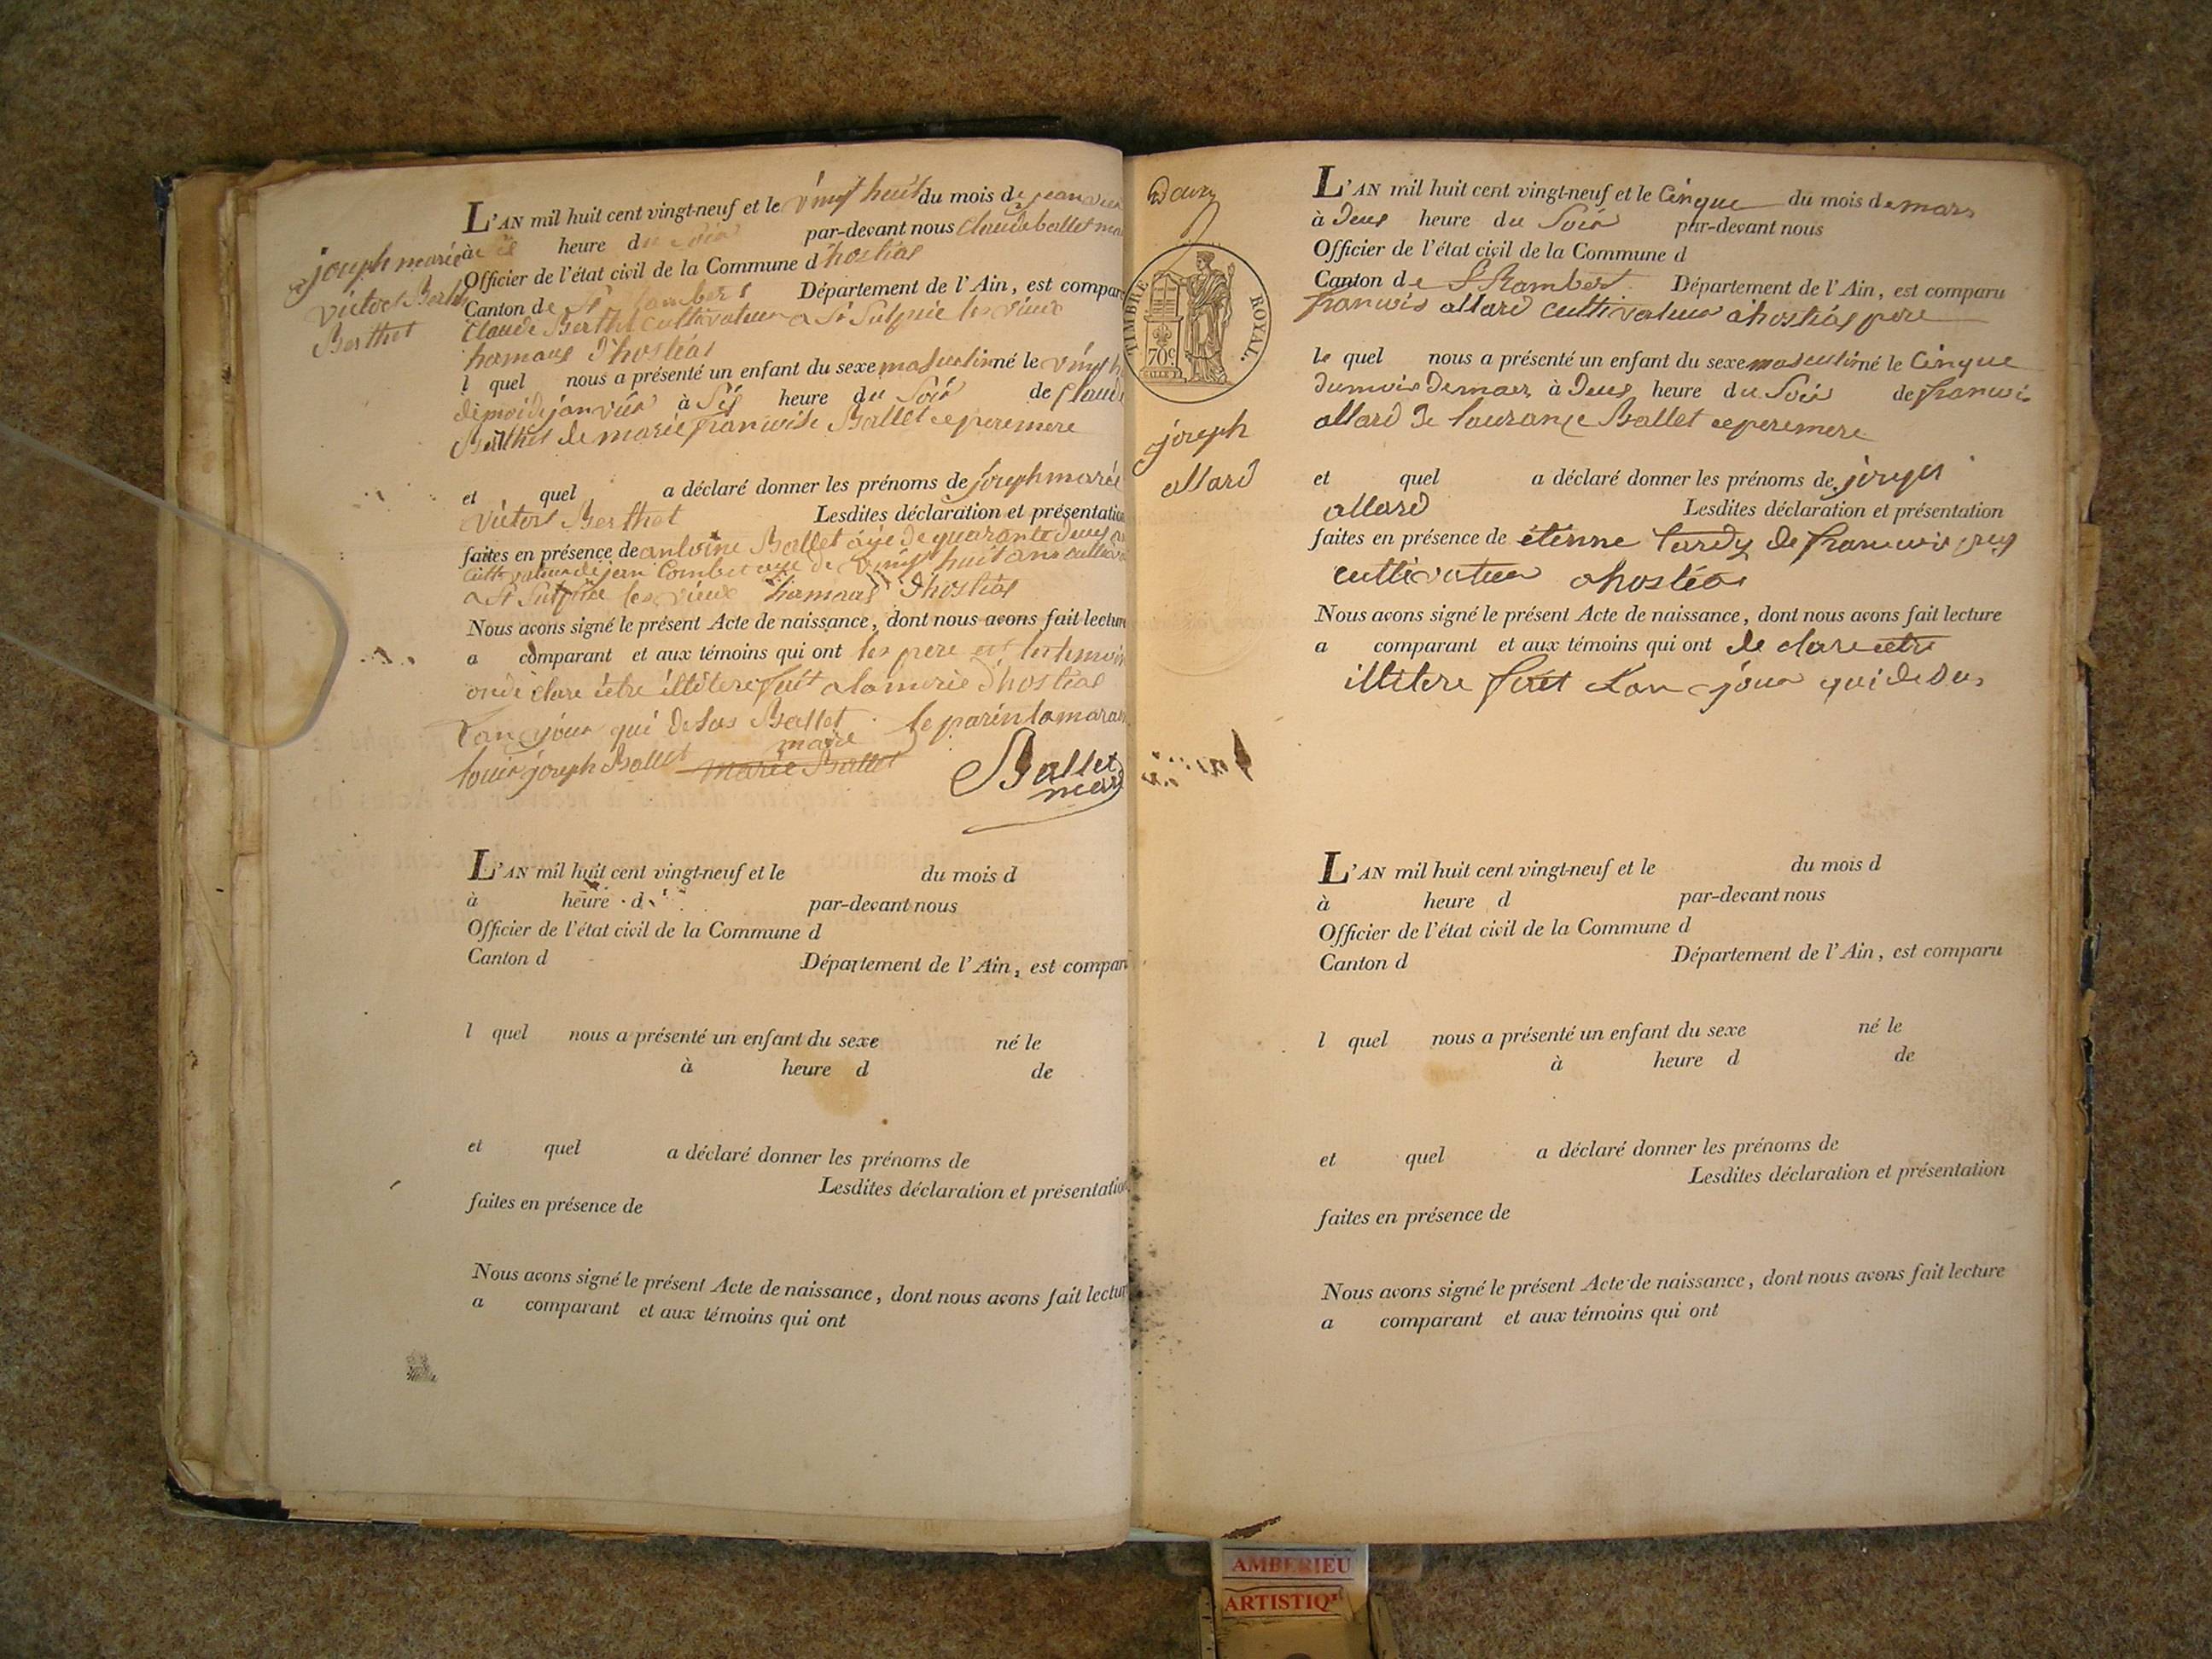 joseph marie
victort Berth
Berthet
L'AN mil huit cent vingt-neuf et le vingt huit du mois de janvier
à heure du soir par-devant nous Claude ballet ma
Officier de l'état civil de la Commune d hostias
Canton de St Rambert Département de l'Ain, est compar
Claude Berthet cultivateur a St Sulpice les vieux
hamaus d'hostias
l quel nous a présenté un enfant du sexe masculin né le vingt h
de moi de janvier à Sis heure du Soir de Claude
Berthet de marie francoise Ballet ce pere mere
et quel a déclaré donner les prénoms de joseph marie
victort Berthet Lesdites déclaration et présentation
faites en présence de antoine Ballet aje de quarante deus an
cultivateur de jean Combet aje de vingt huit ans cultiva
a St Sulpice les vieux hamaus d'hostias
Nous avons signé le présent Acte de naissance, dont nous avons fait lecture
a comparant et aux témoins qui ont les pere et les temoin
on de clareietre illitere fait a la merie d'hostias
Lan jour qui desus Ballet le parin la marain
maire
louis joseph Ballet marie Ballet
Ballet
maire
L'AN mil huit cent vingt-neuf et le du mois d
à heure d par-devant nous
Officier de l'état civil de la Commune d
Canton d Département de l'Ain, est compar
l quel nous a présenté un enfant du sexe né le
à heure d de
et quel a déclaré donner les prénoms de
Lesdites déclaration et présentation
faites en présence de
Nous avons signé le présent Acte de naissance, dont nous avons fait lectur
a comparant et aux témoins qui ont
TIMBRE ROYAL.
70c
joseph
allard
L'AN mil huit cent vingt-neuf et le Cinque du mois de mars
à Deus heure du Soir par-devant nous
Officier de l'état civil de la Commune d
Canton de St Rambert Département de l'Ain, est comparu
francois allard cultivateur a hostias pere
le quel nous a présenté un enfant du sexe masculin né le Cinque
du mois de mars à Deus heure du Soir de francois
allard de laurance Ballet ce pere mere
et quel a déclaré donner les prénoms de joseph
allard Lesdites déclaration et présentation
faites en présence de étienne tardy de francois
cultivateur a hostias
Nous avons signé le présent Acte de naissance, dont nous avons fait lecture
a comparant et aux témoins qui ont de clare ietre
illitere fait Lan jour qui desus
L'AN mil huit cent vingt-neuf et le du mois d
à heure d par-devant nous
Officier de l'état civil de la Commune d
Canton d Département de l'Ain, est comparu
l quel nous a présenté un enfant du sexe né le
à heure d de
et quel a déclaré donner les prénoms de
Lesdites déclaration et présentation
faites en présence de
Nous avons signé le présent Acte de naissance, dont nous avons fait lecture
a comparant et aux témoins qui ont
AMBERIEU
ARTISTIQ